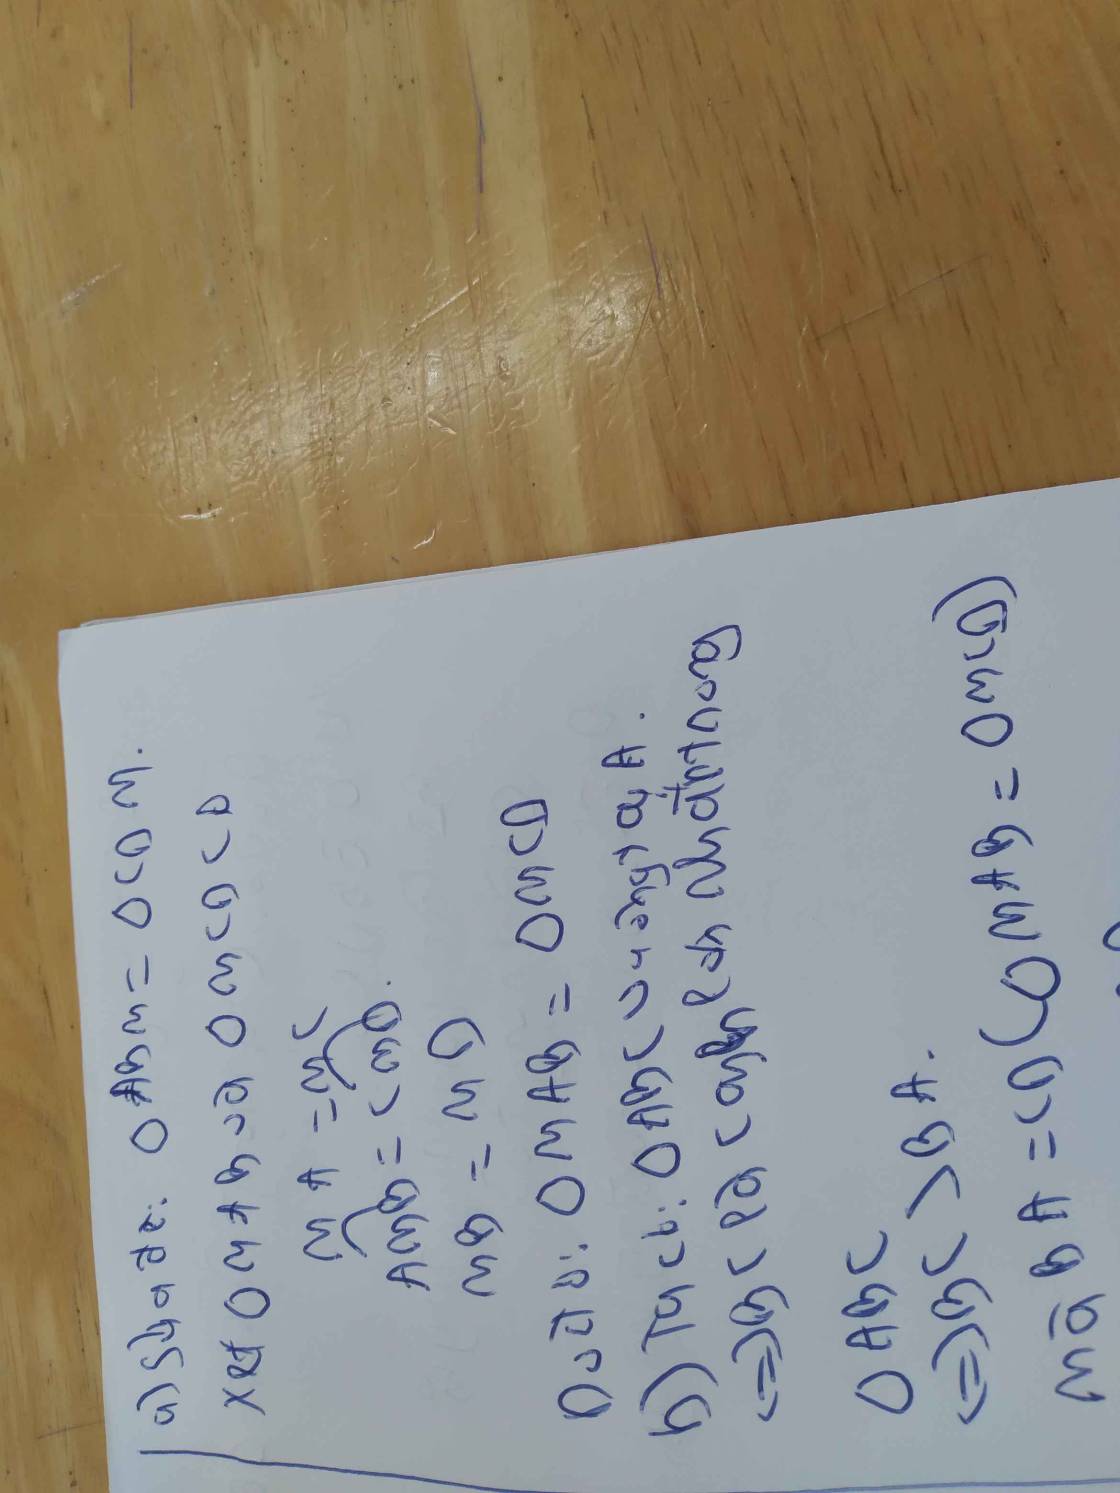 a) ΔABM = ΔCDM.
xét ΔMAB và ΔMCD CD
MA = MC
AMB = CMD.
MB = MD
Do đó: ΔMAB = ΔMCD
b) Ta có: ΔABC vuông tại A.
=> BC là cạnh lớn nhất trong
ΔABC
=> BC > BA.
mà BA = CD (ΔMAB = ΔMCD)